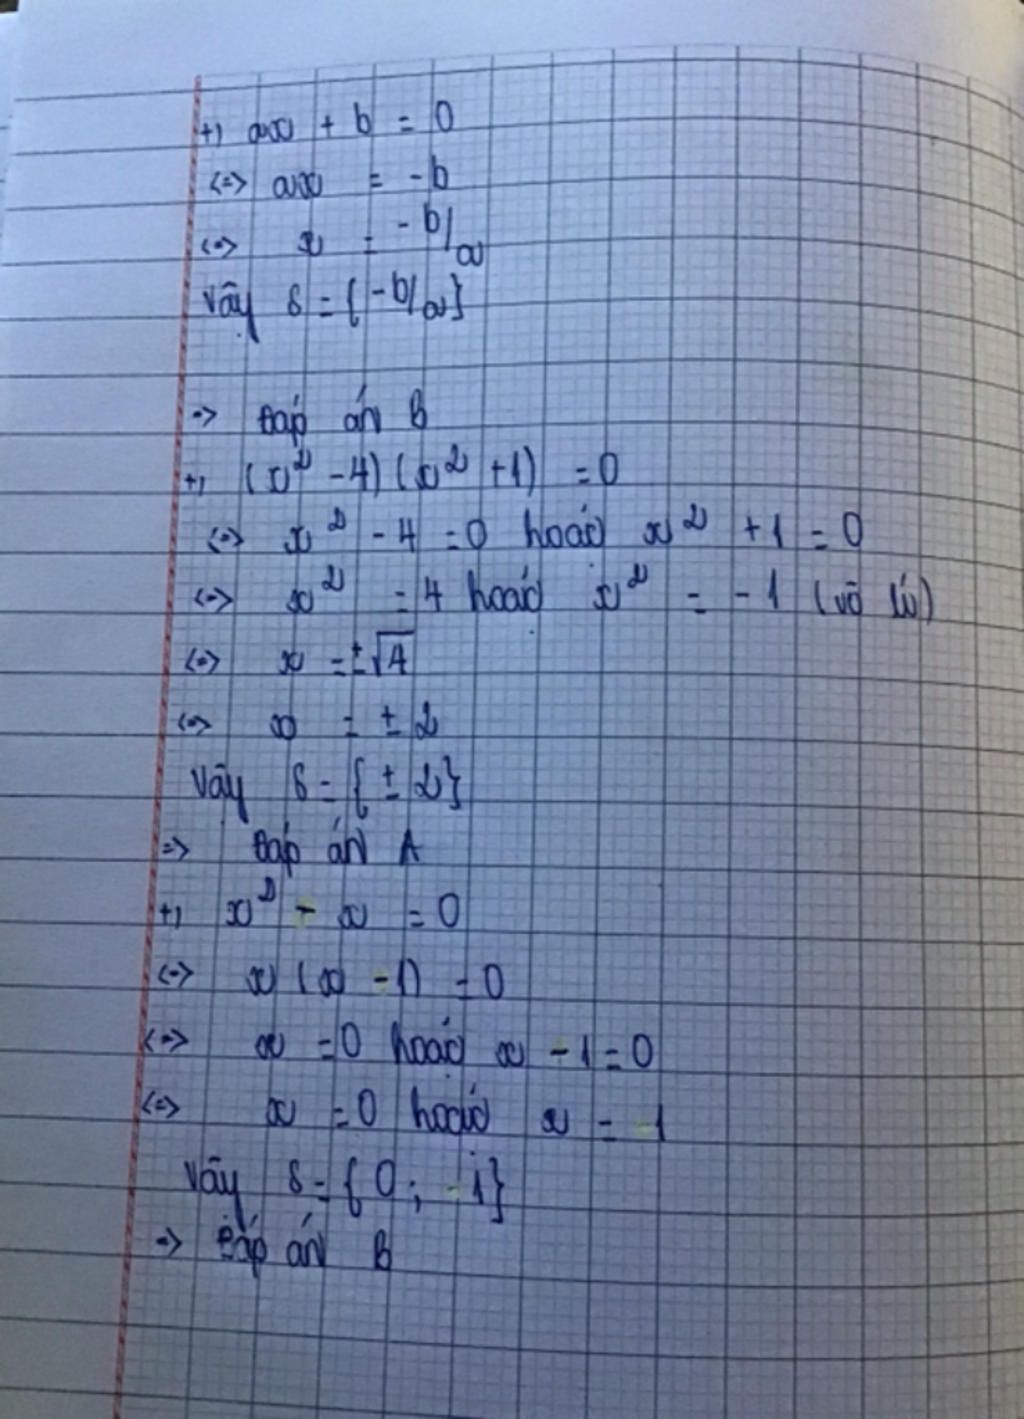 +, ax + b = 0
<=> ax = -b
<=> x = -b/a
Vậy S = {-b/a}
=> Đáp án B
+, (x² - 4)(x² + 1) = 0
<=> x² - 4 = 0 hoặc x² + 1 = 0
<=> x² = 4 hoặc x² = -1 (vô lí)
<=> x = ±√4
<=> x = ± 2
Vậy S = {± 2}
=> Đáp án A
+, x² - x = 0
<=> x (x - 1) = 0
<=> x = 0 hoặc x - 1 = 0
<=> x = 0 hoặc x = -1
Vậy S = {0 ; -1}
=> Đáp án B